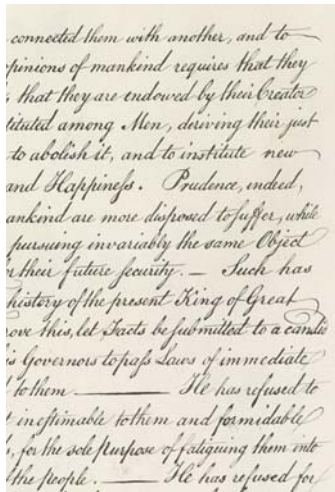 connected them with another, and to
opinions of mankind requires that they
that they are endowed by their Creator
tituted among Men, deriving their just
to abolish it, and to institute new
and Happineſs. Prudence, indeed,
ankind are more disposed to suffer, while
pursuing invariably the same Object
their future security. — Such has
history of the present King of Great
rove this, let Facts be submitted to a candid
Governors to paſs Laws of immediate
to them ——— He has refused to
inestimable to them and formidable
, for the sole purpose of fatiguing them into
the people. ——— He has refused for